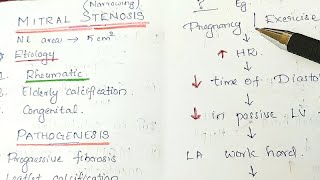 (Narrowing)
MITRAL STENOSIS
Nl area → 5 cm²
Etiology
1. Rheumatic
2. Elderly calcification.
Congenital.
PATHOGENESIS
Progressive fibrosis
Leaflet calcification
? Eg.
Pregnancy / Exercise
↓
↑ HR.
↓
↓ time of Diasto
↓
↓ in passive LV
↓
LA work hard.
↓